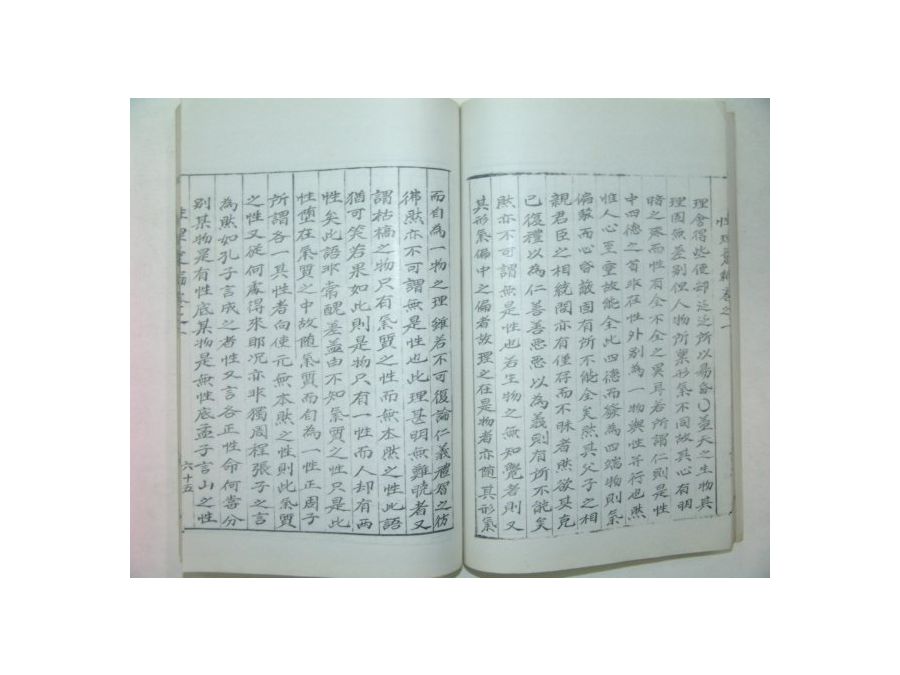 性理彙編卷之一
理會得些便都近近所以易昏○蓋天之生物其
理固無差別但人物所稟形氣不同故其心有明
暗之殊而性有全不全之異耳若所謂仁則是性
中四德之首非在性外別為一物與性幷行也然
惟人心至靈故能全此四德而發為四端物則氣
偏駁而心昏蔽固有所不能全矣然其父子之相
親君臣之相統間亦有僅存而不昧者然欲其克
己復禮以為仁善善惡惡以為義則有所不能矣
然亦不可謂無是性也若生物之無知覺者則又
其形氣偏中之偏者故理之在是物者亦隨其形氣
而自為一物之理雖若不可復論仁義禮智之彷
彿然亦不可謂無是性也此理甚明無難曉者又
謂枯槁之物只有氣質之性而無本然之性此語
猶可笑若果如此則是物只有一性而人却有兩
性矣此語非常醜差蓋由不知氣質之性只是此
性墮在氣質之中故隨氣質而自為一性正周子
所謂各一其性者向使元無本然之性則此氣質
之性又從何處得來耶况亦非獨周程張子之言
為然如孔子言成之者性又言各正性命何嘗分
別某物是有性底某物是無性底孟子言山之性
六十五